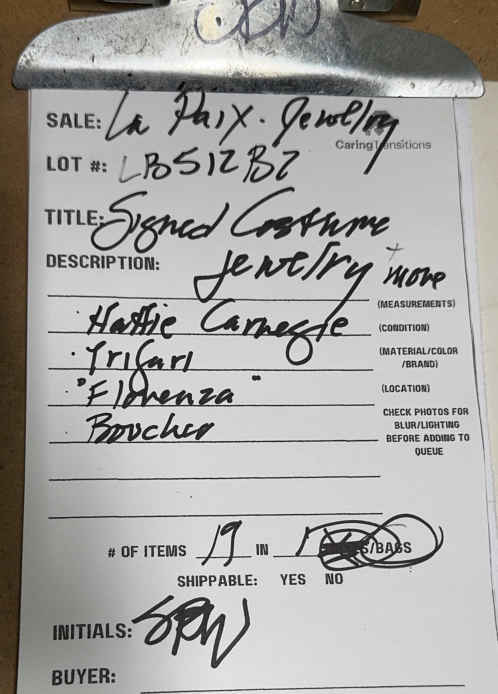 SALE: La Paix. Jewelry
CaringTransitions
LOT #: LB512B2
TITLE: Signed Costume
DESCRIPTION: Jewelry + more
(MEASUREMENTS)
· Hattie Carnegie (CONDITION)
· Trifari (MATERIAL/COLOR
/BRAND)
· "Florenza" (LOCATION)
Boucher CHECK PHOTOS FOR
BLUR/LIGHTING
BEFORE ADDING TO
QUEUE
# OF ITEMS 19 IN 1 /BAGS
SHIPPABLE: YES NO
INITIALS: SRW
BUYER: